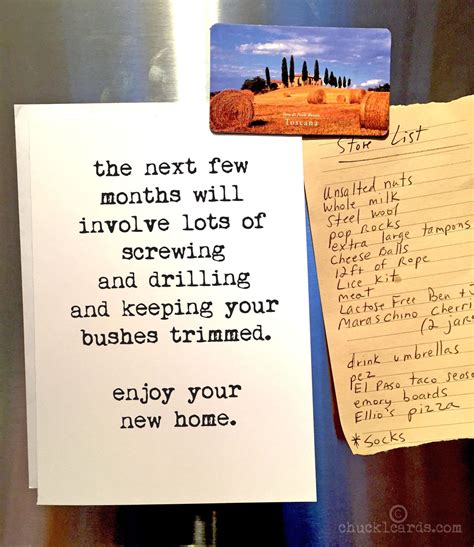 the next few
months will
involve lots of
screwing
and drilling
and keeping your
bushes trimmed.
enjoy your
new home.
Toscana
Store List
Unsalted nuts
whole milk
Steel wool
pop Rocks
extra large tampons
Cheese Balls
12ft of Rope
Lice kit
meat
Lactose Free Ben +
Maraschino Cherri
(2 jar
drink umbrellas
pez
El Paso taco seaso
emory boards
Ellio's pizza
*Socks
©
chucklcards.com